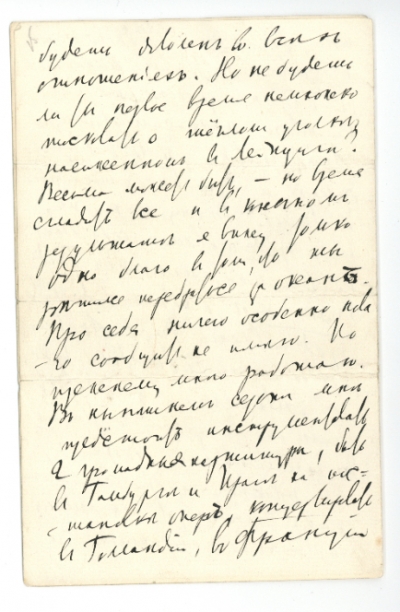 будешь доволенъ во всѣхъ
отношеніяхъ. Но не будешь
ли въ первое время немножко
тосковать о тёпломъ уголкѣ
насиженномъ въ Лейпцигѣ?
Весьма можетъ быть, – но время
сгладитъ все и въ конечномъ
результатѣ я вижу только
одно благо въ томъ, что ты
рѣшился перебраться за океанъ.
Про себя ничего особенно нова
-го сообщить не имѣю. По
прежнему много работаю.
Въ нынѣшнемъ сезонѣ мнѣ
предстоитъ инструментовать
2 громадныя партитуры, быть
въ Гамбургѣ и Прагѣ на по-
-становкѣ оперъ, концертировать
въ Голландіи, во Франціи